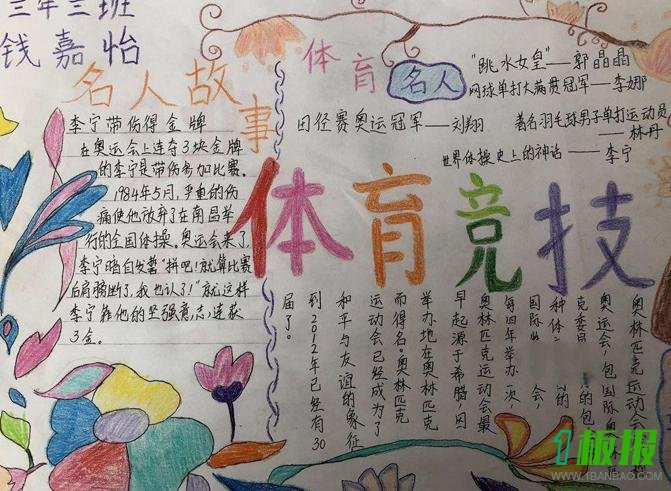 三年三班
钱嘉怡
名人故事
李宁带伤得金牌
在奥运会上连夺3块金牌
的李宁是带伤参加比赛.
1984年5月,严重的伤
痛使他放弃了在南昌举
行的全国体操。奥运会来了,
李宁暗自发誓"拼吧!就算比赛
后肩膀断了,我也认了!"就这样
李宁靠他的坚强意志,连获
3金。
体育
名人
"跳水女皇"——郭晶晶
网球单打大满贯冠军——李娜
田径赛奥运冠军——刘翔
著名羽毛球男子单打运动员
——林丹
世界体操史上的神话——李宁
体育竞技
奥林匹克运动会
奥运会,包国际奥
克委员 的包
种体 的
国际 会,
每四年举办 次
奥林匹克运动会最
早起源于希腊,因
举办地在奥林匹克
而得名。奥林匹克
运动会已经成为了
和平与友谊的象征
到2012年已经有30
届了。
1板报
WWW.1BANBAO.COM